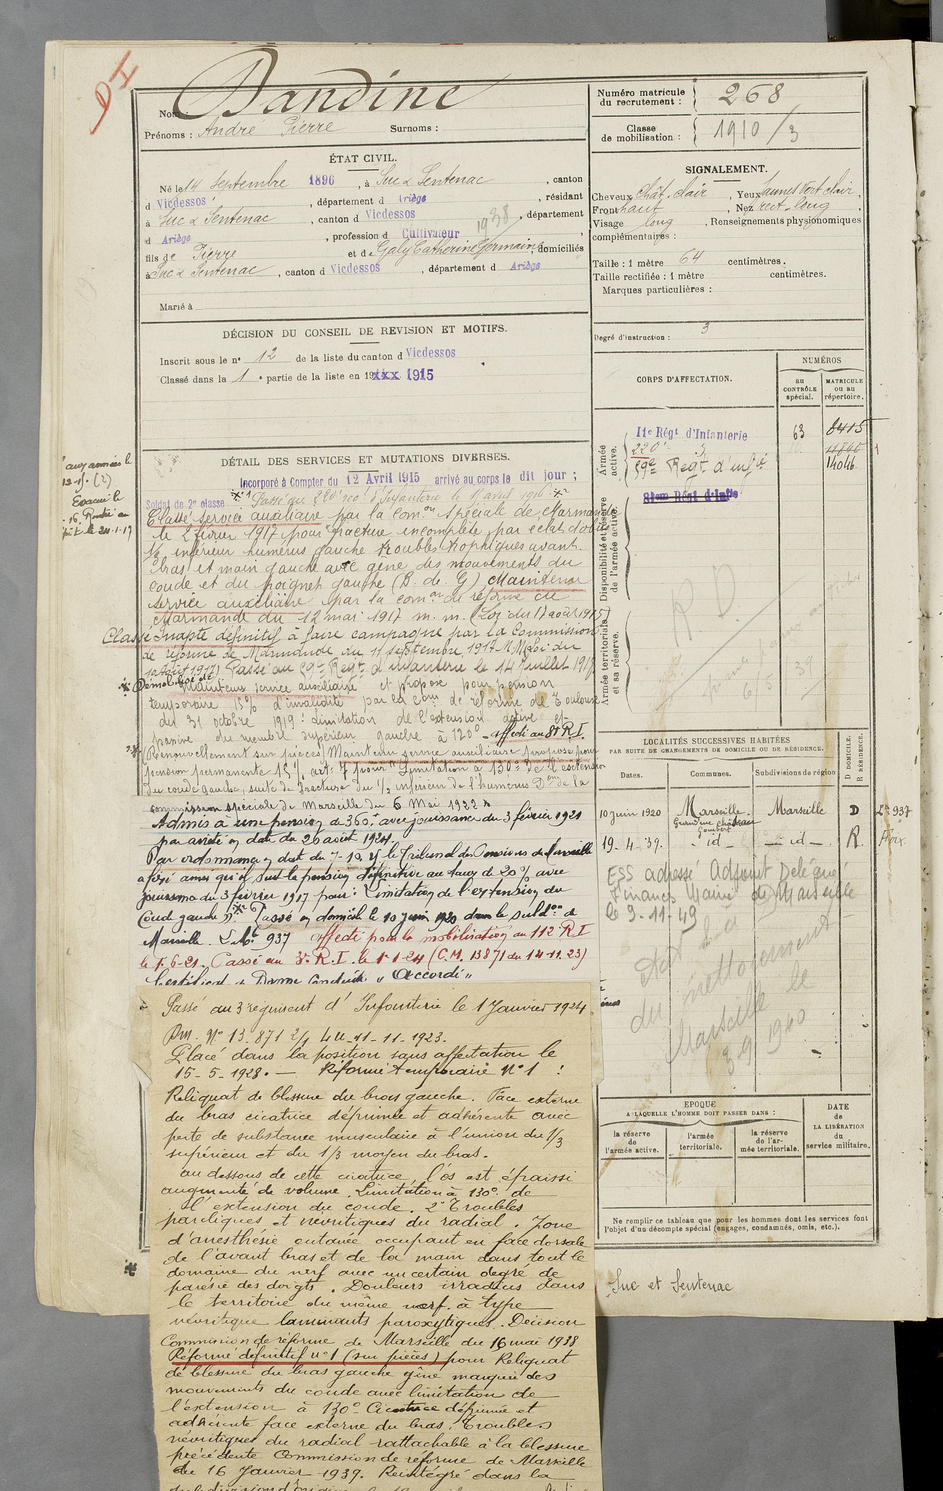 Nom Dandine
Prénoms : André Pierre Surnoms :
Numéro matricule du recrutement : 268
Classe de mobilisation : 1910/3
ÉTAT CIVIL.
Né le 14 Septembre 1896, à Suc & Sentenac, canton
d Vicdessos, département d Ariège, résidant
à Suc & Sentenac, canton d Vicdessos, département
d Ariège, profession d Cultivateur 1938
fils de Pierre et de Galy Catherine Germaine, domiciliés
à Suc & Sentenac, canton d Vicdessos, département d Ariège
Marié à
SIGNALEMENT.
Cheveux chât. clair, Yeux jaunes vert clair
Front haut, Nez rect. long,
Visage long, Renseignements physionomiques
complémentaires :
Taille : 1 mètre 64 centimètres.
Taille rectifiée : 1 mètre centimètres.
Marques particulières :
Degré d'instruction : 3
DÉCISION DU CONSEIL DE REVISION ET MOTIFS.
Inscrit sous le n° 12 de la liste du canton d Vicdessos
Classé dans la 1e partie de la liste en 19xxx 1915
DÉTAIL DES SERVICES ET MUTATIONS DIVERSES.
Incorporé à Compter du 12 Avril 1915 arrivé au corps le dit jour ;
Soldat de 2e classe Passé au 220e Rég d'Infanterie le 1r avril 1916
Classé service auxiliaire par la Comon spéciale de Marmande
le 2 février 1917 pour fracture incomplète par éclat d'obus
1/3 inférieur humérus gauche troubles trophiques avant
bras et main gauche avec gêne des mouvements du
coude et du poignet gauche (B. de G) Maintenu
service auxiliaire par la comon de réforme de
Marmande du 12 mai 1917 m. m. (Loi du 17 août 1915)
Classé Inapte définitif à faire campagne par la Commission
de réforme de Marmande du 11 septembre 1917
Passé au 59e Régt d'infanterie le 14 juillet 1919
Maintenu service auxiliaire et proposé pour pension
temporaire 15% d'invalidité par la com de réforme de Toulouse
du 31 octobre 1919 : Limitation de l'extension active et
passive du membre supérieur gauche à 120° - affecté au 81 R.I.
(Renouvellement sur pièces) Maintenu service auxiliaire proposé pour
pension permanente 15% Limitation à 130° de l'extension
du coude gauche, suite de fracture du 1/3 inférieur de l'humérus Don de la
commission spéciale de Marseille du 6 Mai 1922
Admis à une pension de 360f avec jouissance du 3 février 1921
par arrêté en date du 26 août 1924.
Par ordonnance en date du 7-10 le Tribunal des Pensions de Marseille
a fixé ainsi qu'il suit la pension définitive au taux de 20% avec
jouissance du 3 février 1917 pour : Limitation de l'extension du
Coude gauche Passé en domicile le 10 juin 1920 dans la Subdon de
Marseille L Me 937 affecté pour la mobilisation au 112 R.I
le 1-6-21. Passé au 3e R.I. le 1-1-24 (C.M. 13871 du 14-11-23)
Certificat de Bonne Conduite "Accordé"
Passé au 3e régiment d'Infanterie le 1 Janvier 1924
Dm. N° 13.871 2/1 du 11-11-1923.
Placé dans la position sans affectation le
15-5-1928. — Réformé temporaire N° 1 :
Reliquat de blessure du bras gauche. Face externe
du bras cicatrice déprimée et adhérente avec
perte de substance musculaire à l'union du 1/3
supérieur et du 1/3 moyen du bras.
au dessous de cette cicatrice l'os est épaissi
augmenté de volume. Limitation à 130° de
l'extension du coude. 2° Troubles
parétiques et névritiques du radial. Zone
d'anesthésie cutanée occupant en face dorsale
de l'avant bras et de la main dans tout le
domaine du nerf avec un certain degré de
parésie des doigts. Douleurs irradiées dans
le territoire du même nerf à type
névritique lancinants paroxystiques. Décision
Commission de réforme de Marseille du 16 mai 1938
Réformé définitif n°1 (sur pièces) pour Reliquat
de blessure du bras gauche gêne marquée des
mouvements du coude avec limitation de
l'extension à 130° Cicatrice déprimée et
adhérente face externe du bras. Troubles
névritiques du radial rattachable à la blessure
précédente Commission de réforme de Marseille
du 16 Janvier 1939. Réintégré dans la
subdivision d'origine
CORPS D'AFFECTATION.
NUMÉROS
AU CONTRÔLE spécial.
MATRICULE ou au répertoire.
Armée active.
11e Régt d'Infanterie 63 8415
220e
59e Régt d'infie 14046
Disponibilité et réserve de l'armée active.
81em Régt d'Infie
Armée territoriale et sa réserve.
R. D.
LOCALITÉS SUCCESSIVES HABITÉES
PAR SUITE DE CHANGEMENTS DE DOMICILE OU DE RÉSIDENCE.
Dates. Communes. Subdivisions de région D DOMICILE. R RÉSIDENCE.
10 juin 1920 Marseille Marseille D Lre 937
19-4-39. - id - - id - R. Foix
ESS adressé Adjoint Délégué
Finances Mairie de Marseille
le 3-11-49
Marseille le
3.9.1940
EPOQUE
A LAQUELLE L'HOMME DOIT PASSER DANS :
la réserve de l'armée active.
l'armée territoriale.
la réserve de l'armée territoriale.
DATE de LA LIBÉRATION du service militaire.
Ne remplir ce tableau que pour les hommes dont les services font
l'objet d'un décompte spécial (engagés, condamnés, omis, etc.).
Suc et Sentenac